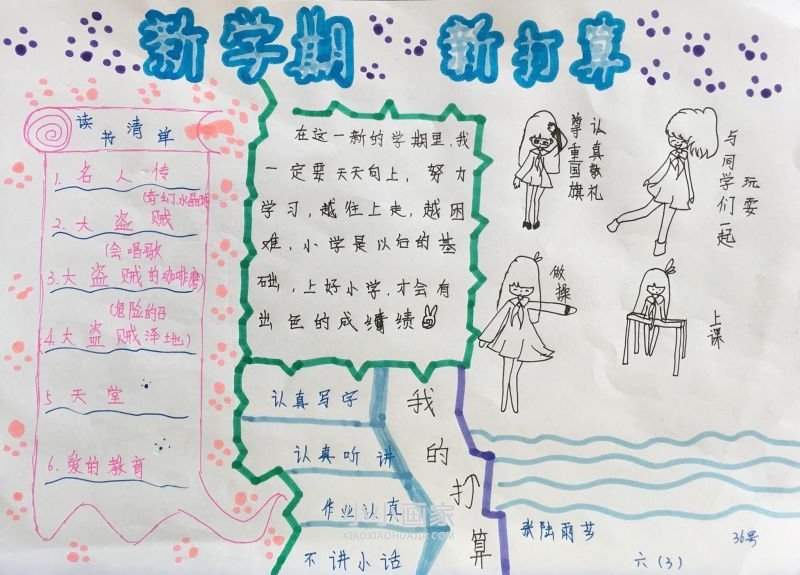 新学期 新打算
读书清单
1. 名人传
(奇幻水晶球)
2. 大盗贼
(会唱歌
3. 大盗贼的咖啡磨)
(危险的
4. 大盗贼泽地)
5 天堂
6. 爱的教育
在这一新的学期里,我
一定要天天向上,努力
学习,越往上走,越困
难,小学是以后的基
础,上好小学,才会有
出色的成绩
认真敬礼
尊重国旗
与同学们一起
玩耍
做操
上课
我的打算
认真写字
认真听讲
作业认真
不讲小话
张陆雨艺
六(3)
36号
XIAOXIAOHUAJIA.COM